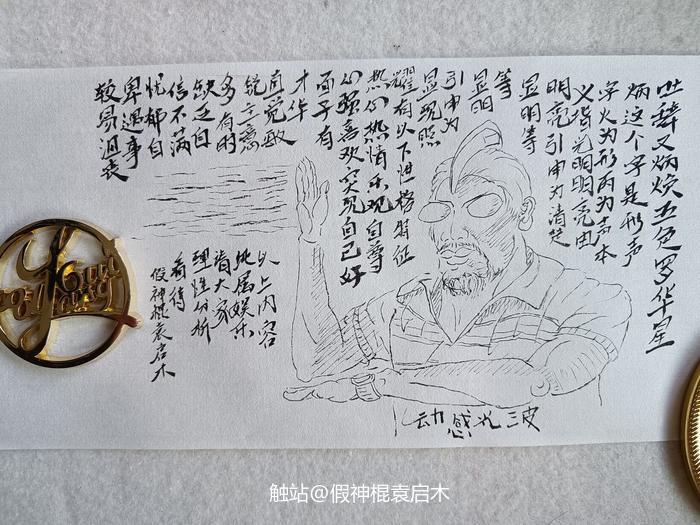 吐辞又炳焕五色罗华星
炳这个字是形声
字火为形丙为声本
义指光明明亮由
明亮引申为清楚
显明等
等
显明
引申为
显现照
耀有以下性格特征
热情乐观自尊
的强喜欢实现自己好
面子有
才华
直觉敏
锐主意
多有时
缺乏自
信不满
忧郁自
卑遇事
较易沮丧
以上内容
纯属娱乐
请大家
理性分析
看待
假神棍袁启木
动感光波
触站@假神棍袁启木